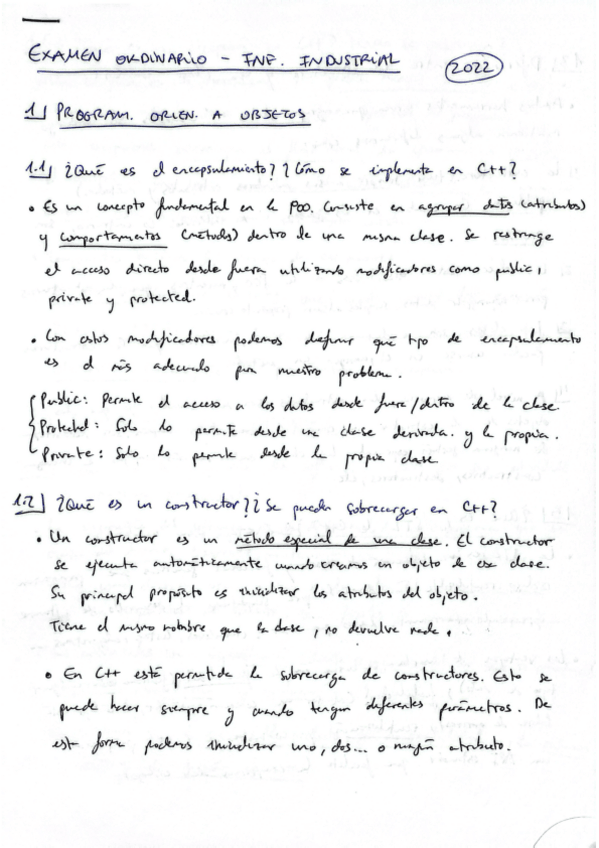 EXAMEN ORDINARIO - INF. INDUSTRIAL 2022
1] PROGRAM. ORIEN. A OBJETOS
1.1] ¿Qué es el encapsulamiento? ¿Cómo se implementa en C++?
• Es un concepto fundamental en la POO. Consiste en agrupar datos (atributos)
y comportamientos (métodos) dentro de una misma clase. Se restringe
el acceso directo desde fuera utilizando modificadores como public,
private y protected.
• Con estos modificadores podemos definir qué tipo de encapsulamiento
es el más adecuado para nuestro problema.
Public: Permite el acceso a los datos desde fuera/dentro de la clase
Protected: Solo lo permite desde una clase derivada. y la propia.
Private: Solo lo permite desde la propia clase
1.2] ¿Qué es un constructor? ¿Se puede sobrecargar en C++?
• Un constructor es un método especial de una clase. El constructor
se ejecuta automáticamente cuando creamos un objeto de esa clase.
Su principal propósito es inicializar los atributos del objeto.
Tiene el mismo nombre que la clase, no devuelve nada.
• En C++ está permitida la sobrecarga de constructores. Esto se
puede hacer siempre y cuando tengan diferentes parámetros. De
esta forma podemos inicializar uno, dos... o ningún atributo.